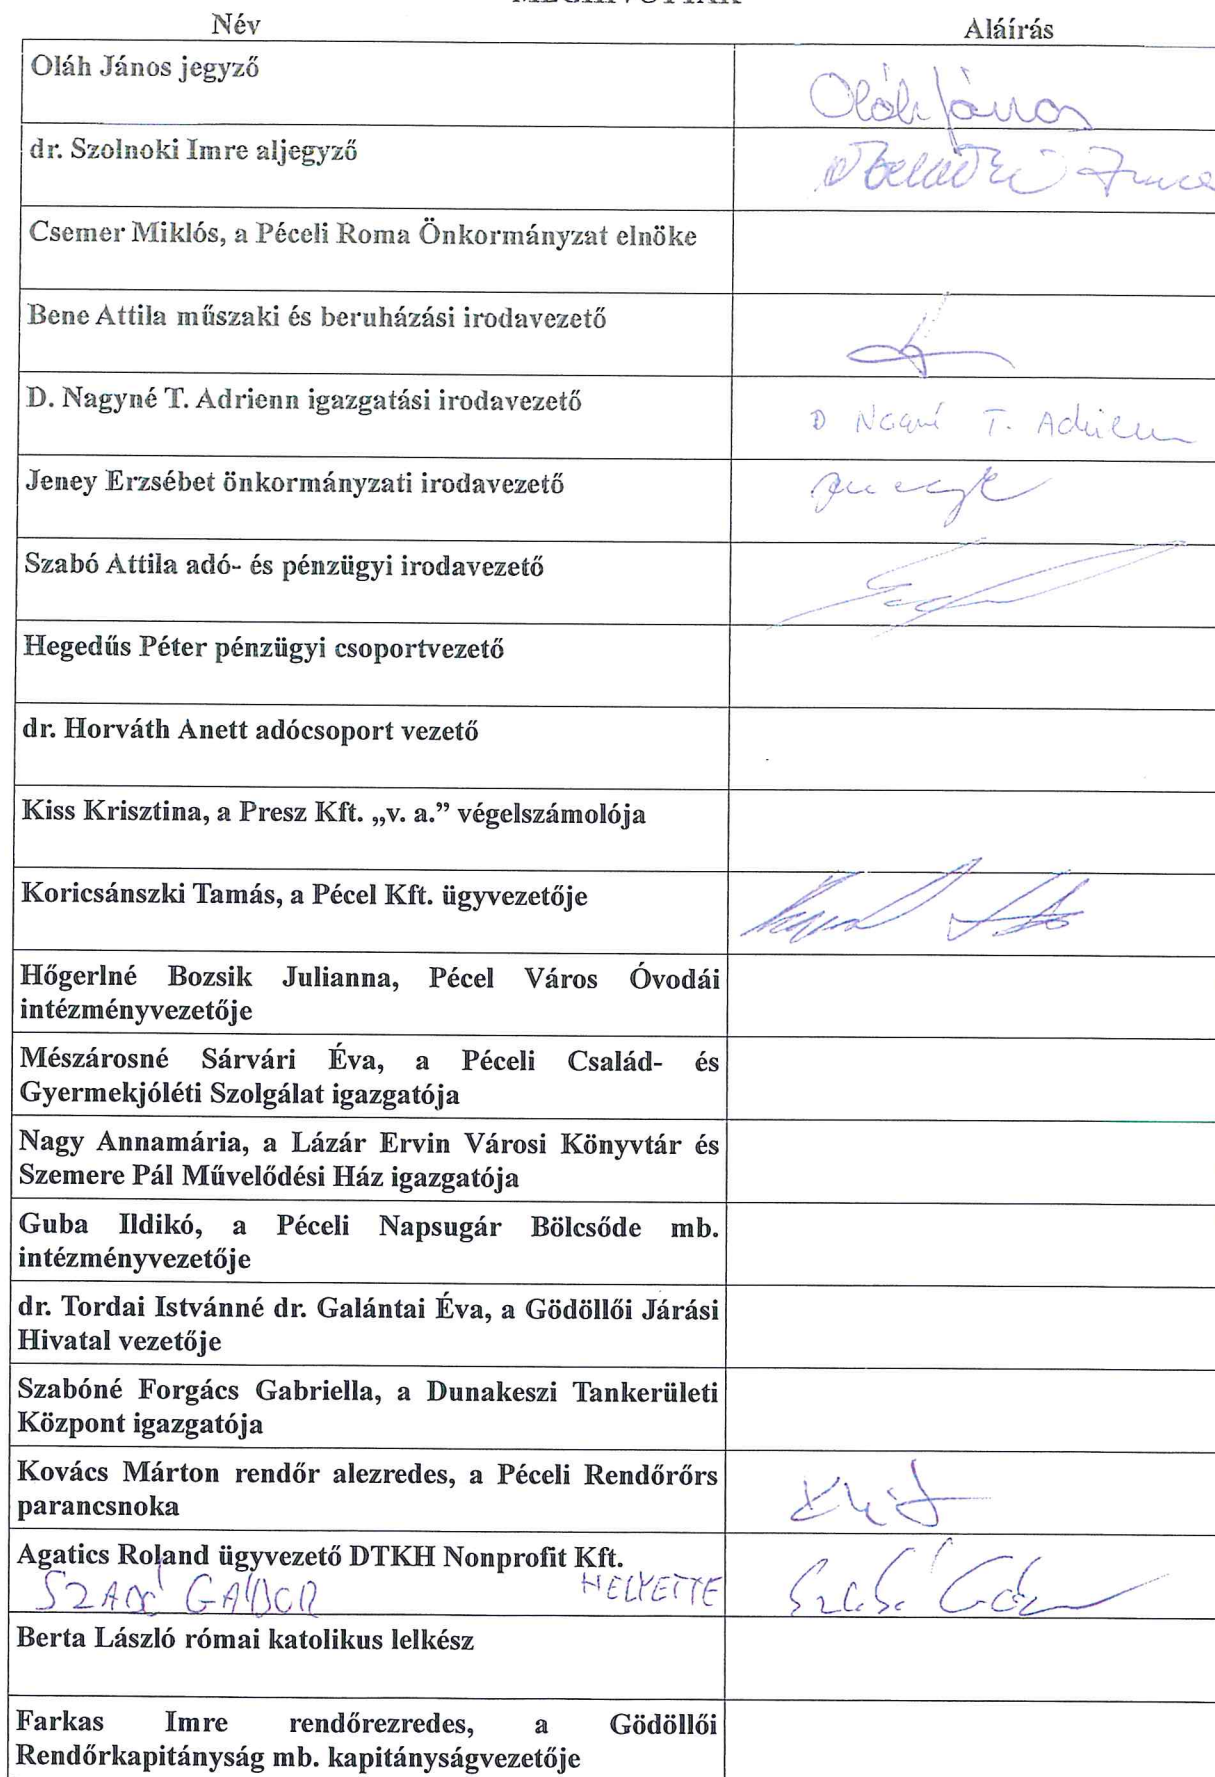 MEGHÍVOTTAK
Név Aláírás
Oláh János jegyző
Oláh János
dr. Szolnoki Imre aljegyző
Imre
Csemer Miklós, a Péceli Roma Önkormányzat elnöke
Bene Attila műszaki és beruházási irodavezető
D. Nagyné T. Adrienn igazgatási irodavezető
D Nagyné T. Adrienn
Jeney Erzsébet önkormányzati irodavezető
Szabó Attila adó- és pénzügyi irodavezető
Hegedűs Péter pénzügyi csoportvezető
dr. Horváth Anett adócsoport vezető
Kiss Krisztina, a Presz Kft. „v. a.” végelszámolója
Koricsánszki Tamás, a Pécel Kft. ügyvezetője
Hőgerlné Bozsik Julianna, Pécel Város Óvodái
intézményvezetője
Mészárosné Sárvári Éva, a Péceli Család- és
Gyermekjóléti Szolgálat igazgatója
Nagy Annamária, a Lázár Ervin Városi Könyvtár és
Szemere Pál Művelődési Ház igazgatója
Guba Ildikó, a Péceli Napsugár Bölcsőde mb.
intézményvezetője
dr. Tordai Istvánné dr. Galántai Éva, a Gödöllői Járási
Hivatal vezetője
Szabóné Forgács Gabriella, a Dunakeszi Tankerületi
Központ igazgatója
Kovács Márton rendőr alezredes, a Péceli Rendőrőrs
parancsnoka
Agatics Roland ügyvezető DTKH Nonprofit Kft.
SZABÓ GÁBOR HELYETTE Szabó Gábor
Berta László római katolikus lelkész
Farkas Imre rendőrezredes, a Gödöllői
Rendőrkapitányság mb. kapitányságvezetője